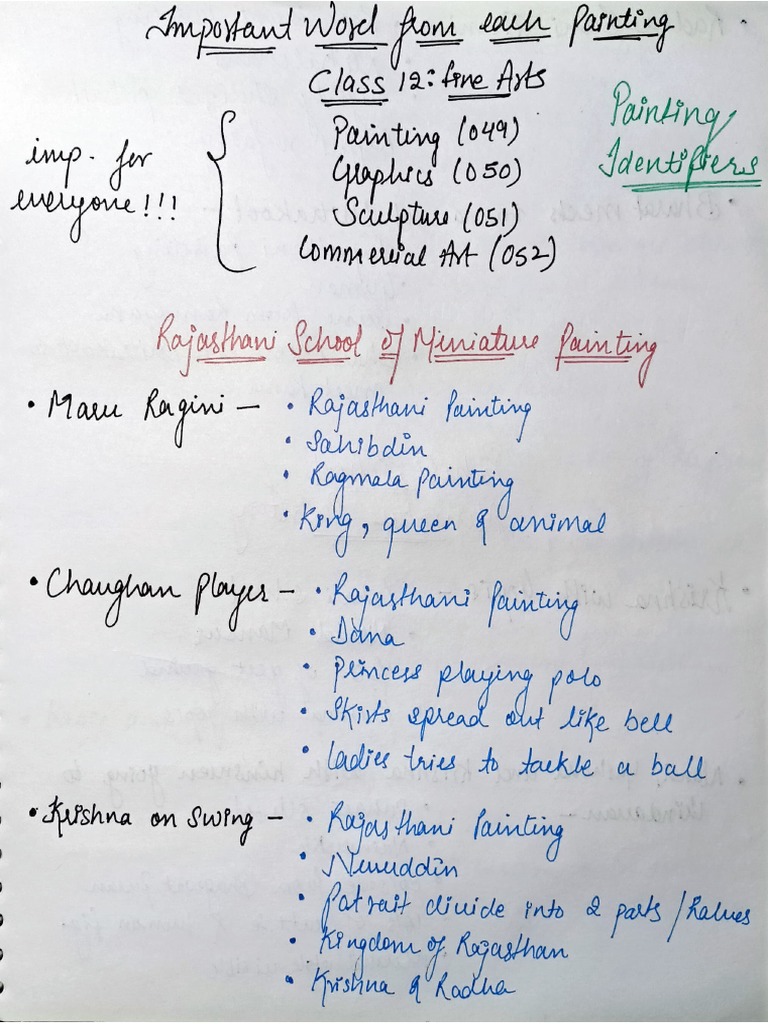 Important Word from each Painting
Class 12: fine Arts
Painting (049)
Graphics (050)
Sculpture (051)
Commercial Art (052)
imp. for
everyone!!!
Painting
Identifiers
Rajasthani School of Miniature Painting
• Maru Ragini — • Rajasthani Painting
• Sahibdin
• Ragmala painting
• King, queen & animal
• Chaughan Player — • Rajasthani Painting
• Dana
• Princess playing polo
• Skirts spread out like bell
• Ladies tries to tackle a ball
• Krishna on Swing — • Rajasthani Painting
• Nuruddin
• Patrait divide into 2 parts/halves
• Kingdom of Rajasthan
• Krishna & Radha